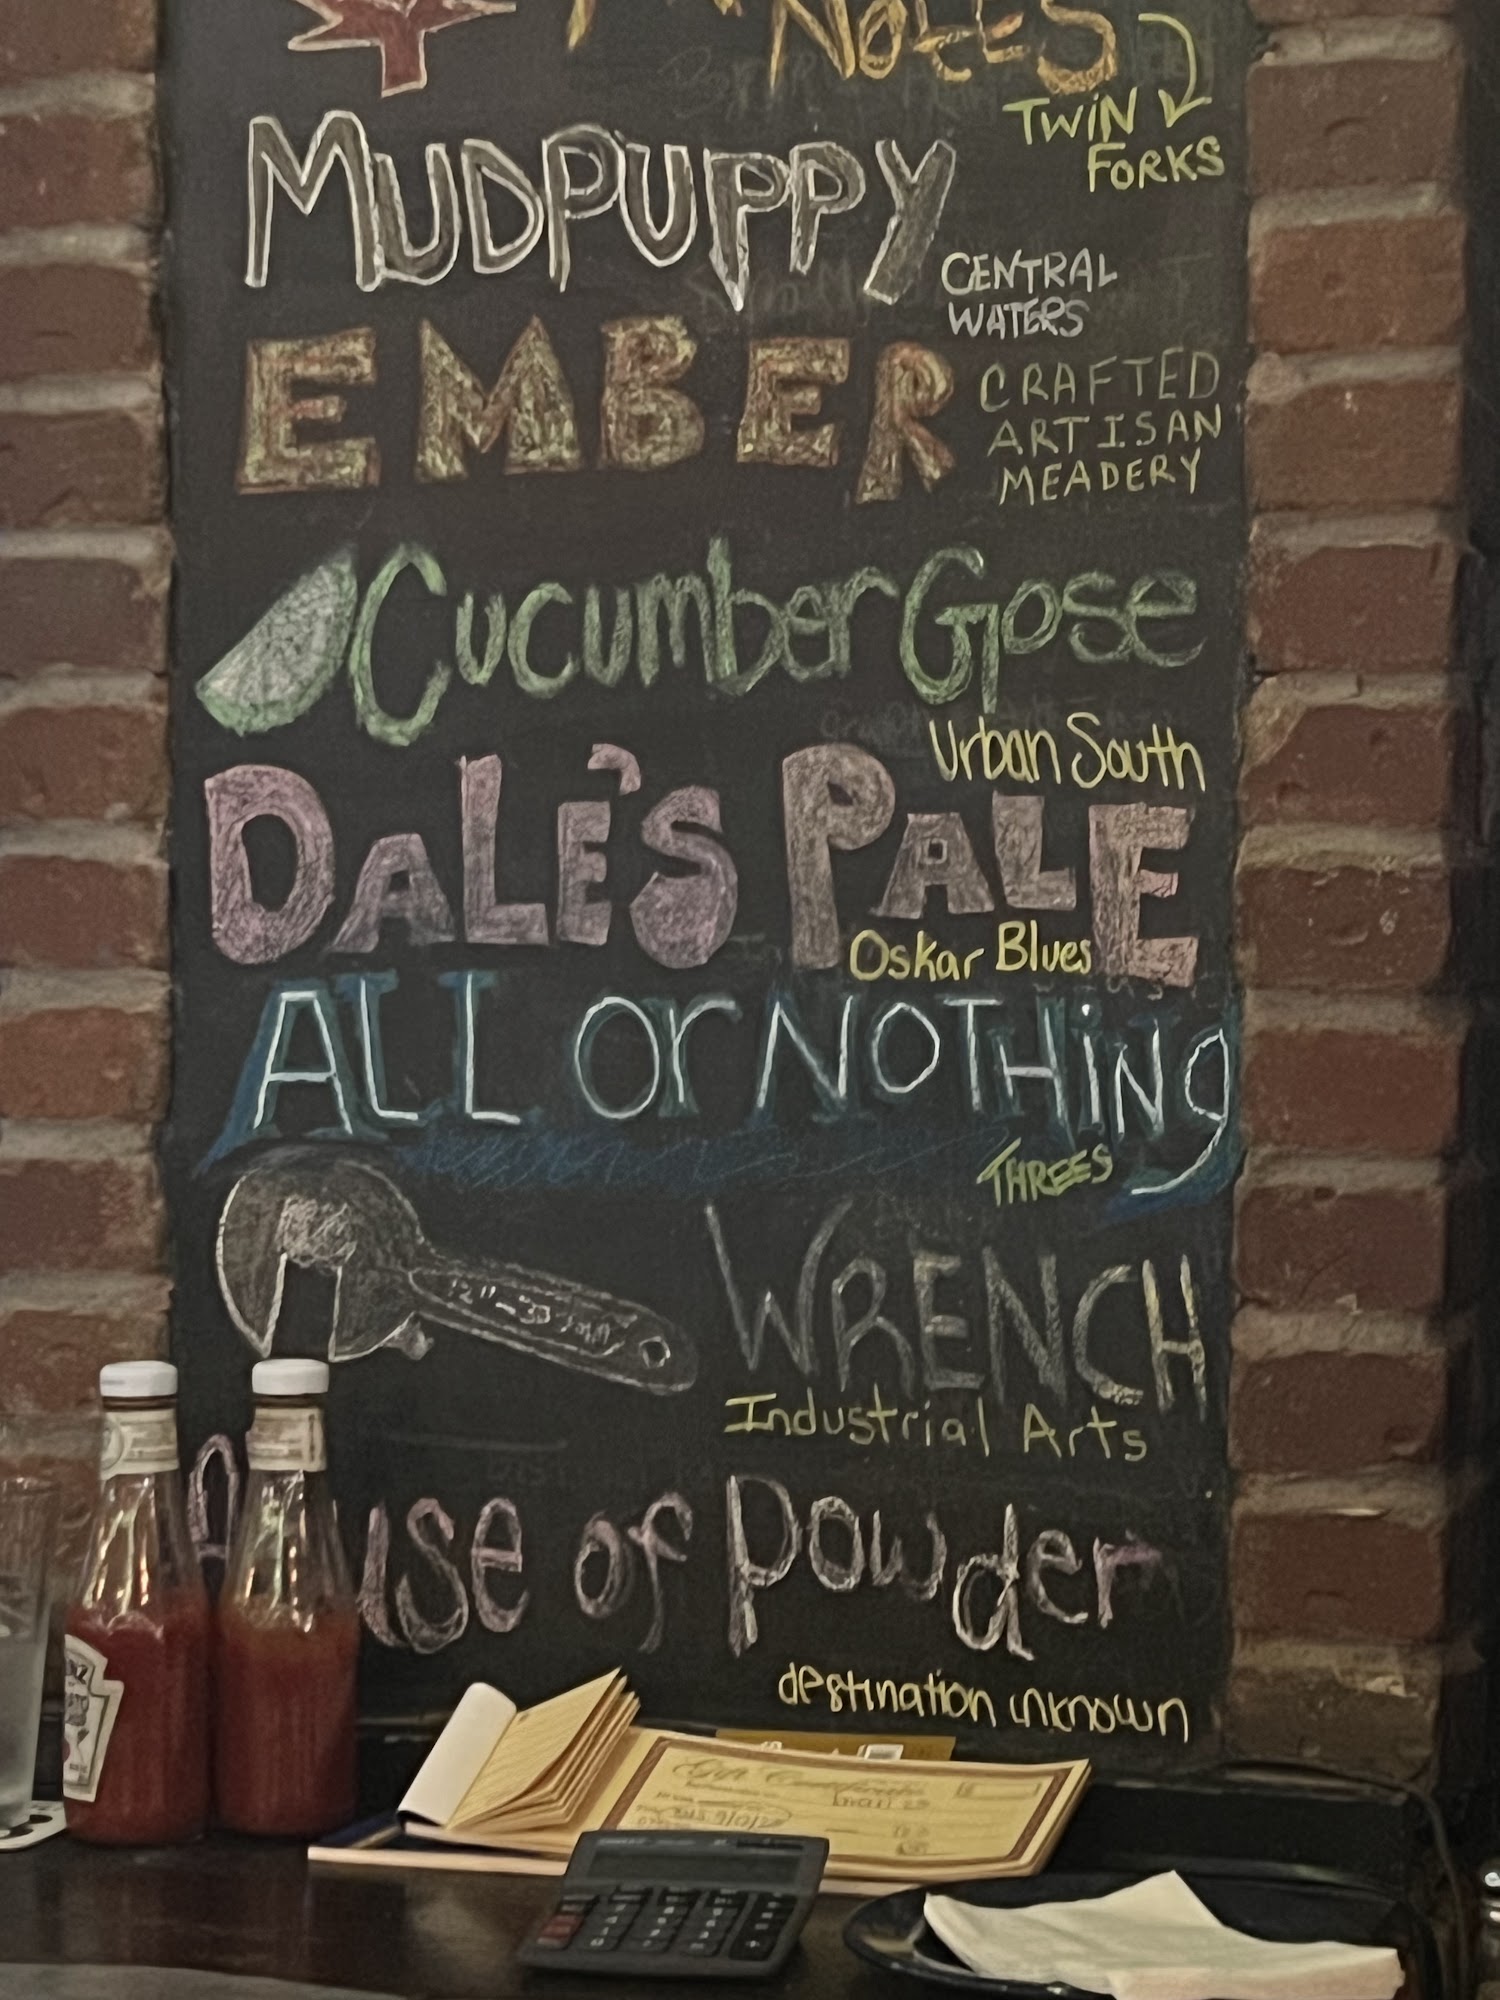 NOTES
TWIN
FORKS
MUDPUPPY
CENTRAL
WATERS
EMBER
CRAFTED
ARTISAN
MEADERY
Cucumber Gose
Urban South
DALE'S PALE
Oskar Blues
ALL Or NOTHiNg
THREES
12"-30
WRENCH
Industrial Arts
use of Powder
destination unknown